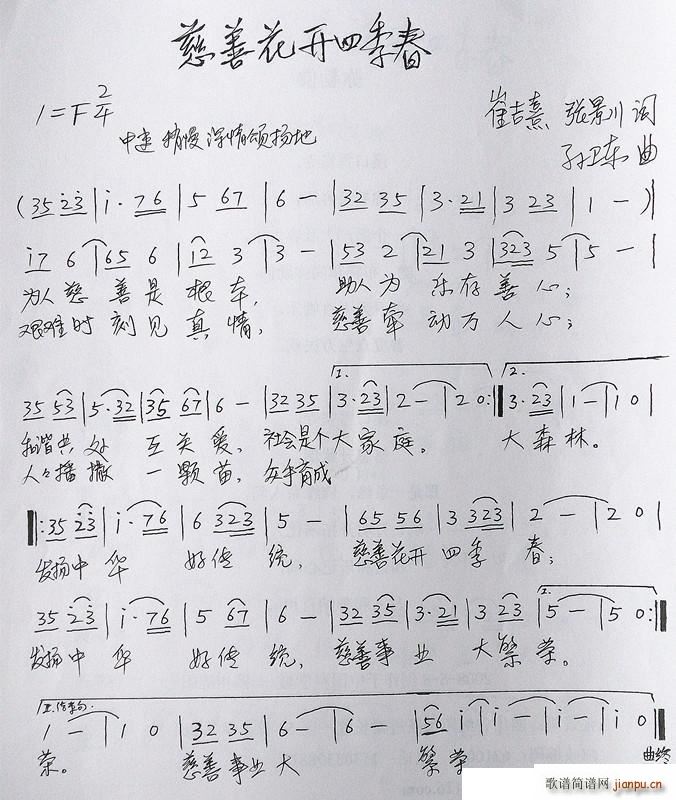 慈善花开四季春
1=F 2/4
中速 稍慢 深情颂扬地
崔吉熹 张景川 词
孙卫东 曲
(35 23 | i· 76 | 5 67 | 6 - | 32 35 | 3· 21 | 3 23 | 1 - )|
i7 6 | 65 6 | i2 3 | 3 - | 53 2 | 21 3 | 323 5 | 5 - |
为人慈善是根本, 助人为乐存善心;
艰难时刻见真情, 慈善牵动万人心;
1. 2.
35 53 | 5· 32 | 35 67 | 6 - | 32 35 | 3· 23 | 2 - | 2 0 :‖ 3· 23 | 1 - | 1 0 |
和谐共处 互关爱, 社会是个大家庭。 大森林。
人人播撒 一颗苗, 众手育成
‖: 35 23 | i· 76 | 6 323 | 5 - | 65 56 | 3 323 | 2 - | 2 0 |
发扬中华 好传统, 慈善花开四季 春;
1.
35 23 | i· 76 | 5 67 | 6 - | 32 35 | 3· 21 | 3 23 | 5 - | 5 0 :‖
发扬中华 好传统, 慈善事业 大繁荣。
1 - | 1 0 | 32 35 | 6 - | 6 - | 56 i | i - | i - | i 0 ‖
荣。 慈善事业大 繁荣
曲终
歌谱简谱网
jianpu.cn